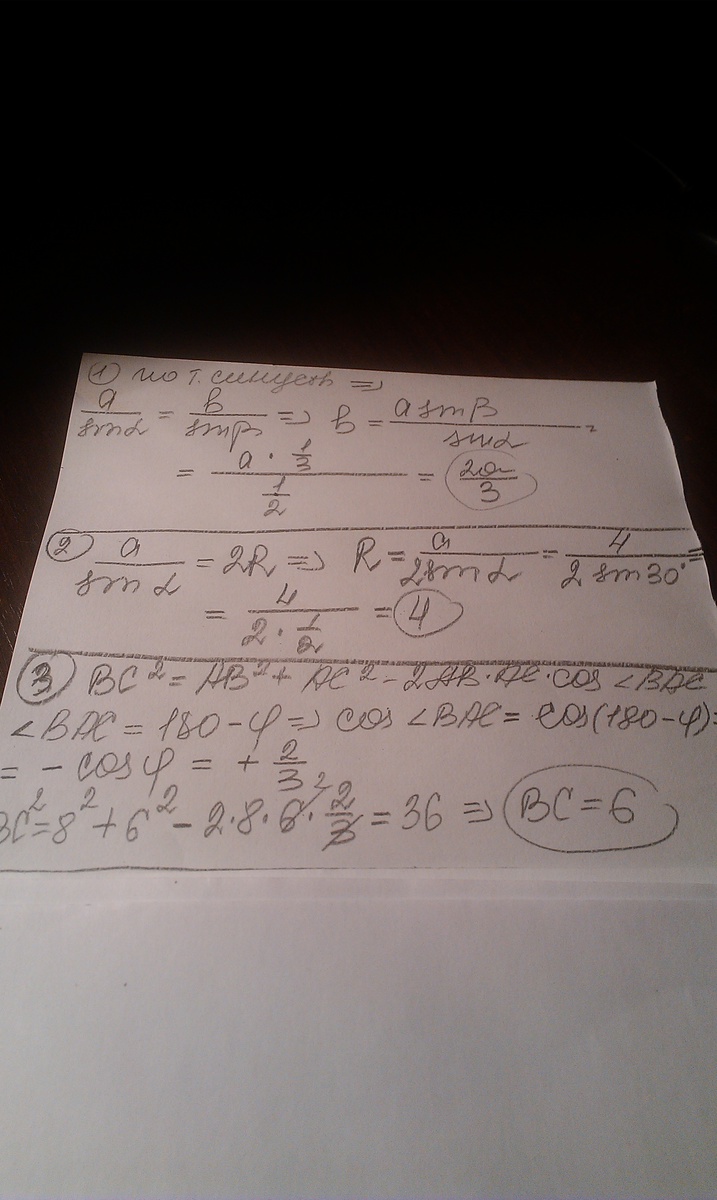 ① по т. синусов ⇒
a/sinα = b/sinβ ⇒ b = a sinβ/sinα =
= (a · 1/3)/(1/2) = 2a/3
② a/sinα = 2R ⇒ R = a/(2 sinα) = 4/(2 sin 30°) =
= 4/(2 · 1/2) = 4
③ BC² = AB² + AC² - 2AB·AC·cos ∠BAC
∠BAC = 180 - φ ⇒ cos ∠BAC = cos(180 - φ) =
= - cos φ = + 2/3
BC² = 8² + 6² - 2·8·6·2/3 = 36 ⇒ BC = 6